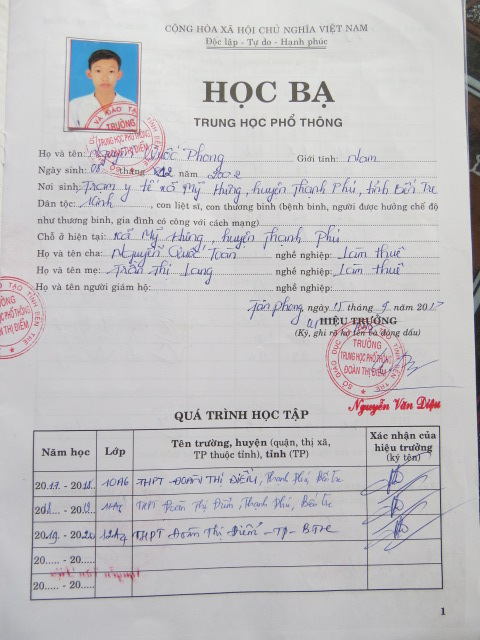 CỘNG HÒA XÃ HỘI CHỦ NGHĨA VIỆT NAM
Độc lập - Tự do - Hạnh phúc
HỌC BẠ
TRUNG HỌC PHỔ THÔNG
Họ và tên: Nguyễn Quốc Phong Giới tính: Nam
Ngày sinh: 05 tháng 12 năm 2002
Nơi sinh: Trạm y tế xã Mỹ Hưng, huyện Thạnh Phú, tỉnh Bến Tre
Dân tộc: Kinh, con liệt sĩ, con thương binh (bệnh binh, người được hưởng chế độ
như thương binh, gia đình có công với cách mạng)
Chỗ ở hiện tại: Xã Mỹ Hưng, huyện Thạnh Phú
Họ và tên cha: Nguyễn Quốc Toàn nghề nghiệp: Làm thuê
Họ và tên mẹ: Trần Thị Lang nghề nghiệp: Làm thuê
Họ và tên người giám hộ: nghề nghiệp:
Tân Phong, ngày 15 tháng 9 năm 2017
HIỆU TRƯỞNG
(Ký, ghi rõ họ tên và đóng dấu)
SỞ GIÁO DỤC VÀ ĐÀO TẠO TỈNH BẾN TRE
TRƯỜNG
TRUNG HỌC PHỔ THÔNG
ĐOÀN THỊ ĐIỂM
Nguyễn Văn Diệu
QUÁ TRÌNH HỌC TẬP
Năm học Lớp Tên trường, huyện (quận, thị xã, TP thuộc tỉnh), tỉnh (TP) Xác nhận của hiệu trưởng (ký tên)
2017 - 2018 10A6 THPT ĐOÀN THỊ ĐIỂM, Thạnh Phú, Bến Tre
2018 - 2019 THPT Đoàn Thị Điểm, Thạnh Phú, Bến Tre
2019 - 2020 THPT Đoàn Thị Điểm - TP - BTre
20..... - 20.....
20..... - 20.....
1